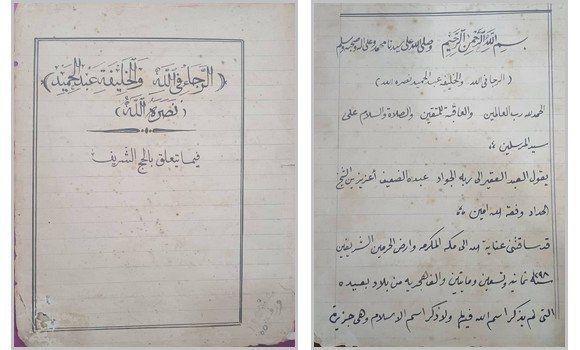 (الرجاء في الله والخليفة عبد الحميد)
(نصره الله)
فيما يتعلق بالحج الشريف
بسم الله الرحمن الرحيم وصلى الله على سيدنا محمد وعلى اله وصحبه وسلم
(الرجا في الله والخليفة عبد الحميد نصره الله)
الحمد لله رب العالمين والعاقبة للمتقين والصلاة والسلام على
سيد المرسلين
يقول العبد الفقير الى ربه الجواد عبده الضعيف أعزيز بن الشيخ
الحداد وفقه الله امين
قد ساقتني عناية الله الى مكه المكرمه وارض الحرمين الشريفين
سنة ١٢٩٨ ثمانيه وتسعين ومايتين والف هجريه من بلاد بعيده
التي لم يذكر اسم الله فيها ولا ذكر اسم الاسلام وهي جزيرة